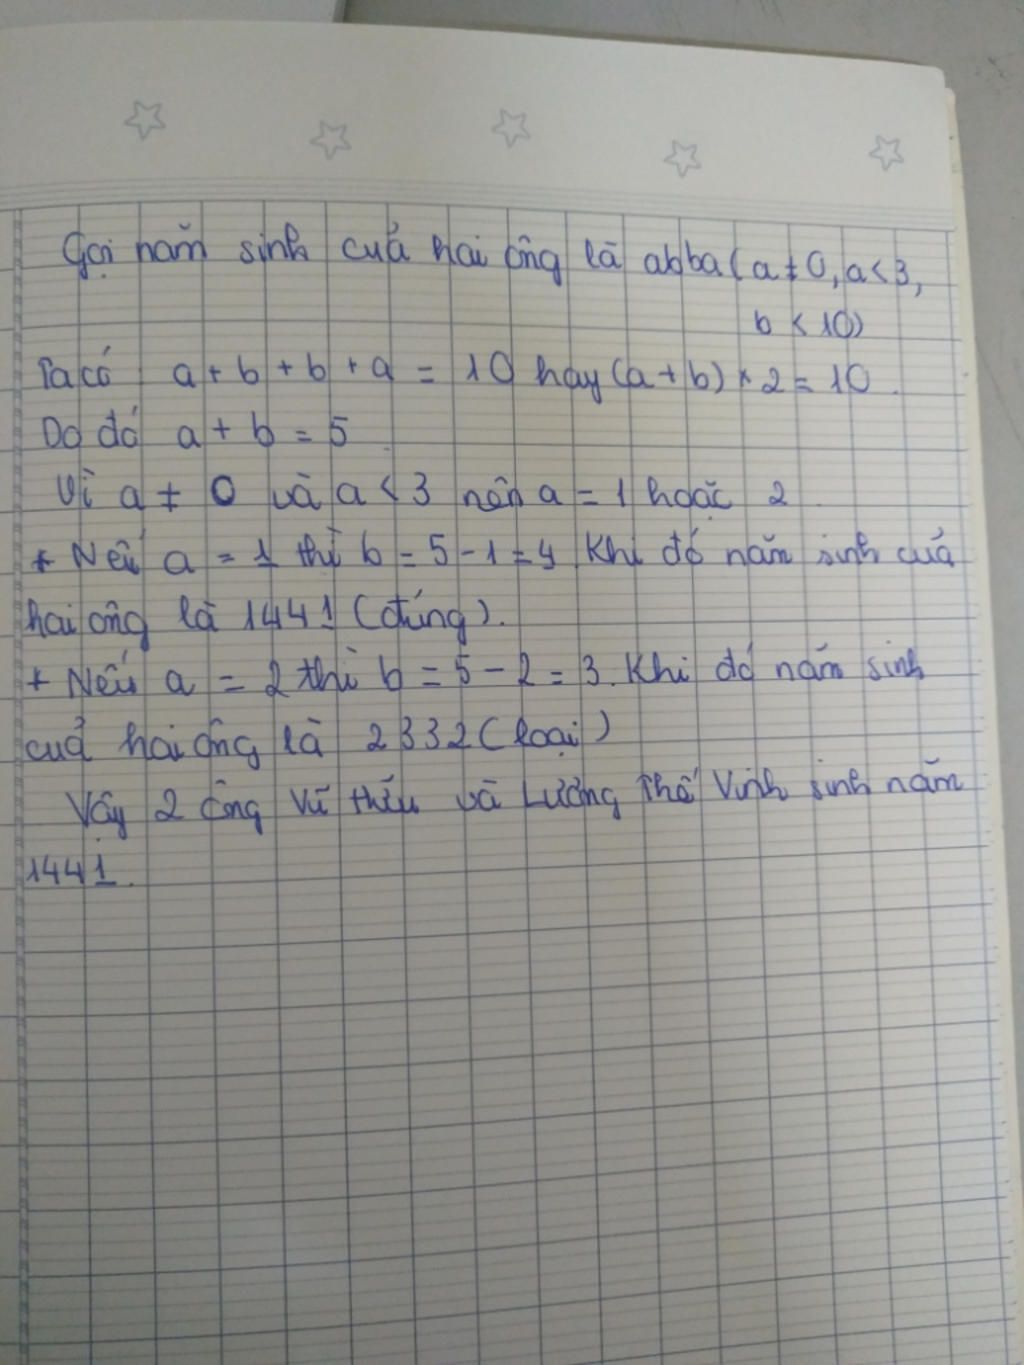 Gọi năm sinh của hai ông là abba (a ≠ 0, a < 3,
b < 10)
Ta có a + b + b + a = 10 hay (a + b) × 2 = 10.
Do đó a + b = 5.
Vì a ≠ 0 và a < 3 nên a = 1 hoặc 2.
+ Nếu a = 1 thì b = 5 - 1 = 4. Khi đó năm sinh của
hai ông là 1441 (đúng).
+ Nếu a = 2 thì b = 5 - 2 = 3. Khi đó năm sinh
của hai ông là 2332 (loại)
Vậy 2 ông Vũ Hữu và Lương Thế Vinh sinh năm
1441.